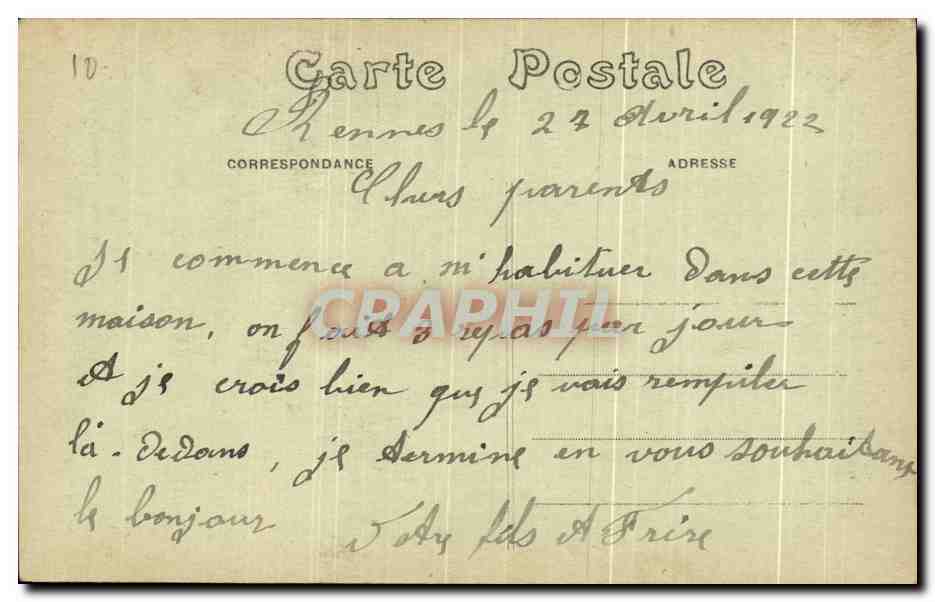 10
Carte Postale
Rennes le 27 Avril 1922
CORRESPONDANCE
ADRESSE
Chers parents
Je commence a m'habituer dans cette
maison, on fait 3 repas par jour
Et je crois bien que je vais rempiler
là-dedans, je termine en vous souhaitant
le bonjour
Votre fils et Frère
CRAPHIL